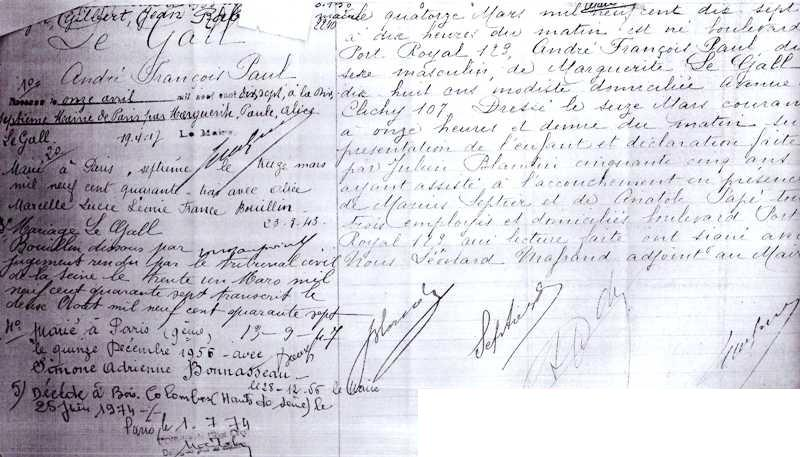 Gilbert, Jean
Le Gall
André François Paul
1º
onze avril mil neuf cent dix sept, à la Dix
septième Mairie de Paris par Marguerite, Paule, Alice
Le Gall. 19.4.17 Le Maire,
2º
Marié à Paris, septième, le treize mars
mil neuf cent quarante-trois avec
Marcelle Lucie Léonie France Bouillin
23-3-43
3º Mariage Le Gall
Bouillin dissous par
jugement rendu par le tribunal civil
de la Seine le trente un Mars mil
neuf cent quarante sept transcrit le
deux Août mil neuf cent quarante sept
13-9-47
4º Marié à Paris (9ème)
le quinze Décembre 1956 avec
Simone Adrienne Bonnasseau
le 28-12-56 le Maire
5) Décédé à Bois Colombes (Hauts de Seine) le
25 Juin 1974
Paris, le 1.7.74
Le quatorze Mars mil neuf cent dix sept
à dix heures du matin est né boulevard
Port Royal 123, André François Paul du
sexe masculin, de Marguerite Le Gall
dix huit ans modiste domiciliée avenue
Clichy 107. Dressé le seize Mars courant
à onze heures et demie du matin sur
présentation de l'enfant et déclaration faite
par Julien cinquante cinq ans
ayant assisté à l'accouchement en présence
de Marius et de Anatole
trois employés et domiciliés boulevard Port
Royal 123 qui lecture faite ont signé avec
Nous Léonard adjoint au Maire